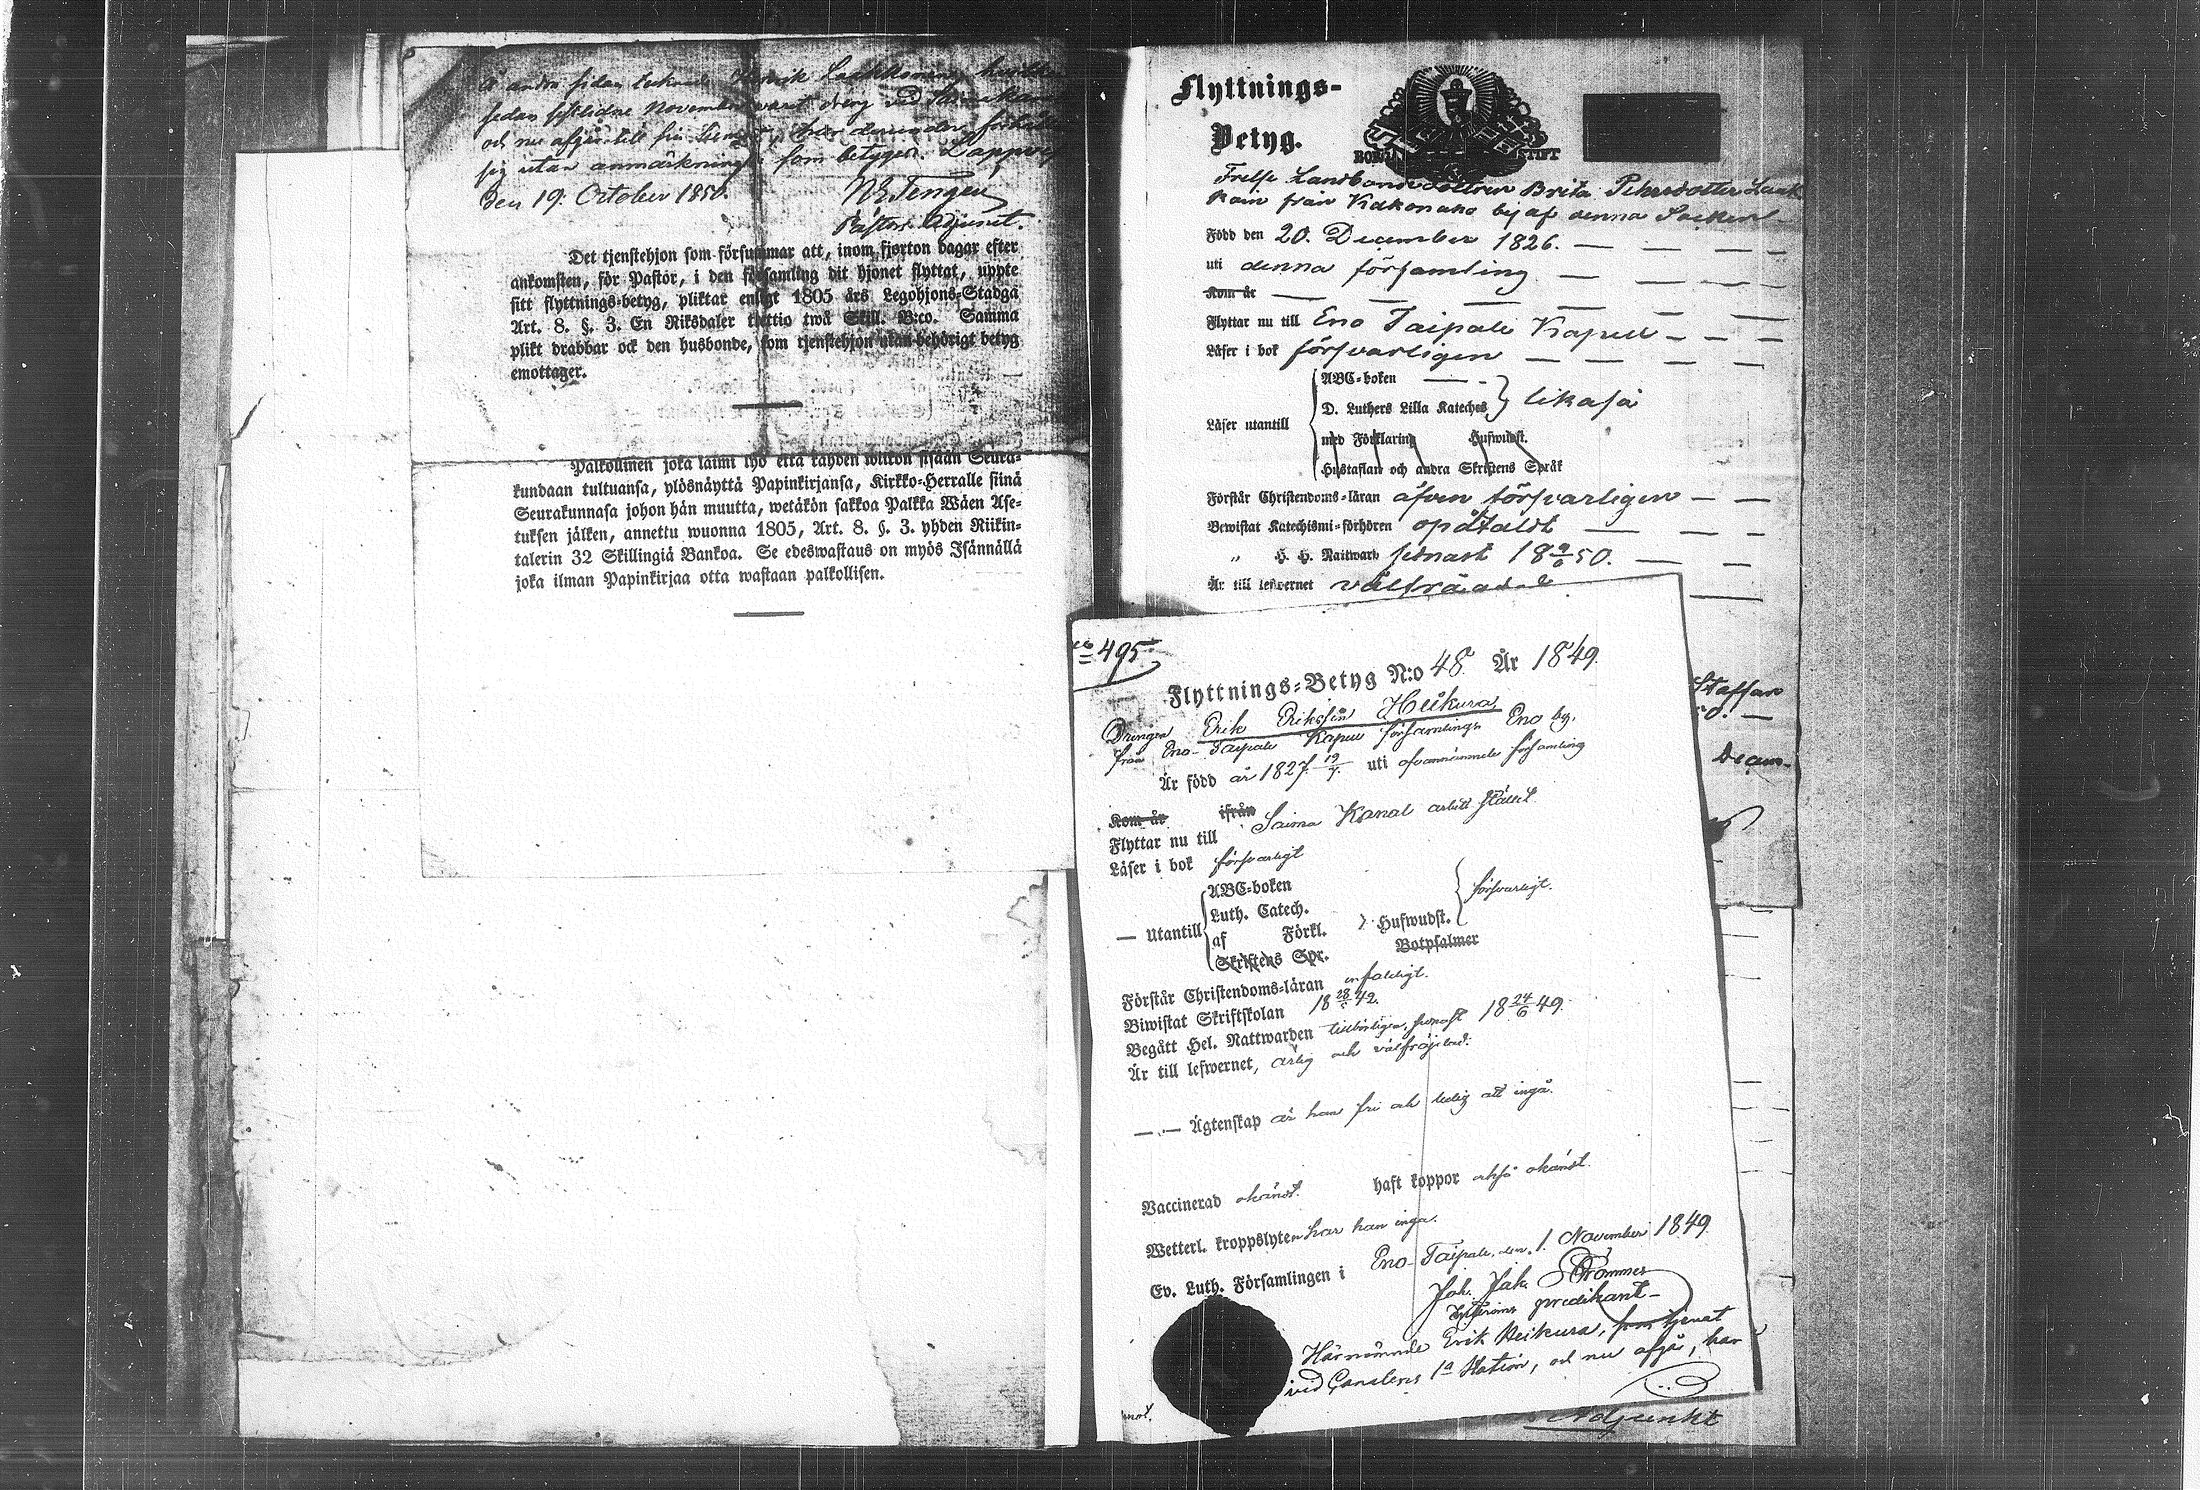 Å andra sidan tecknade Henrik Laakkoinen, hvilken
sedan sistlidne November varit dreng vid Saima Kanal
och nu afgår till sin hemort, har derunder förhållit
sig utan anmärkning; som betygar. Lappvesi
den 19. October 1850.
Pastors Adjunct.
Det tjenstehjon som försummar att, inom fjorton dagar efter
ankomsten, för Pastor, i den församling dit hjonet flyttat, uppte
sitt flyttnings-betyg, pliktar enligt 1805 års Legohjons-Stadga
Art. 8. §. 3. En Riksdaler trettio twå Skill. B:co. Samma
plikt drabbar ock den husbonde, som tjenstehjon utan behörigt betyg
emottager.
Palkollinen joka laimi lyö että kahden wiikon sisään Seura-
kundaan tultuansa, ylösnäyttä Papinkirjansa, Kirkko-Herralle siinä
Seurakunnasa johon hän muutta, wetäkön sakkoa Palkka Wäen Ase-
tuksen jälken, annettu wuonna 1805, Art. 8. §. 3. yhden Riikin-
talerin 32 Skillingiä Bankoa. Se edeswastaus on myös Isännällä
joka ilman Papinkirjaa otta wastaan palkollisen.
Flyttnings-
Betyg.
BORGÅ STIFT
Frelse Landbonde dottren Brita Pehrsdotter Laak
kain från Kakonaho by af denna Socken
Född den 20. December 1826.
uti denna församling
Kom år
Flyttar nu till Eno Taipale Kapell
Läser i bok försvarligen
Läser utantill
ABC-boken
D. Luthers Lilla Kateches } likaså
med Förklaring Hufwudst.
Hustaflan och andra Skriftens Språk
Förstår Christendoms-läran äfven försvarligen
Bewistat Katechismi-förhören opåtaldt
„ H. H. Nattward senast 18 9/6 50.
Är till lefwernet välfräjdad
Staffan
50.
Decem-
No 495
Flyttnings-Betyg N:o 48 År 1849.
Drengen Erik Eriksson Heikura
från Eno-Taipale Kapell församlings Eno by.
Är född år 1827 19/7 uti ofvannämnde församling
Kom år ifrån
Flyttar nu till Saima Kanal arbets stället
Läser i bok försvarligt
— Utantill
ABC-boken
Luth. Catech.
af Förkl. } Hufwudst. försvarligt.
Skriftens Spr. Botpsalmer
Förstår Christendoms-läran enfaldigt.
Biwistat Skriftskolan 18 28/5 42.
Begått Hel. Nattwarden tillbörligen, senast 18 24/6 49.
Är till lefwernet, ärlig och välfräjdad.
—.— Ägtenskap är han fri och ledig att ingå.
Vaccinerad okändt. haft koppor också okändt.
Wetterl. kroppslyten har han inga.
Ev. Luth. Församlingen i Eno-Taipale, den 1. November 1849
Joh. Jak. Strömmer
predikant
Härnämnde Erik Heikura, som tjenat
vid Canalens 1a Station, och nu afgår, har
Adjunkt